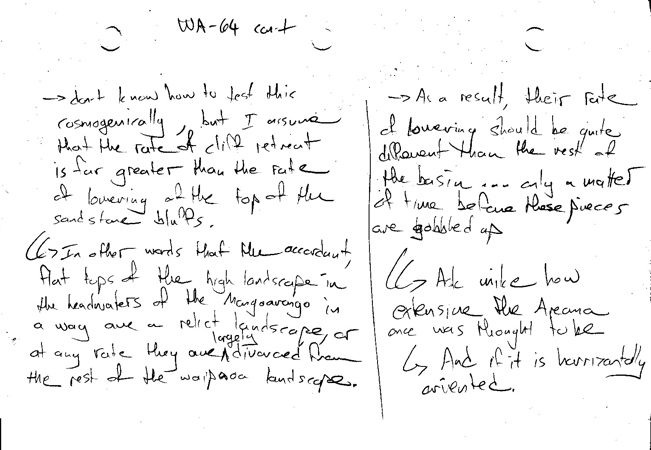 WA-64 cont
→ don't know how to test this
cosmogenically, but I assume
that the rate of cliff retreat
is far greater than the rate
of lowering of the top of the
sandstone bluffs.
↳ In other words that the accordant,
flat tops of the high landscape in
the headwaters of the in
a way are a relict landscape, or
at any rate they are largely divorced from
the rest of the waipaoa landscape.
→ As a result, their rate
of lowering should be quite
different than the rest of
the basin ... only a matter
of time before these pieces
are gobbled up
↳ Ask mike how
extensive the
once was thought to be
↳ And if it is horrizontally
oriented.